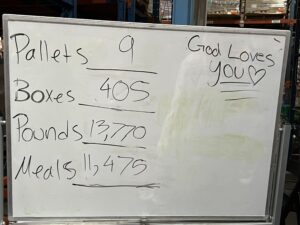 Pallets 9
God Loves
YOU♡
Boxes 405
Pounds 13,770
Meals 11,475